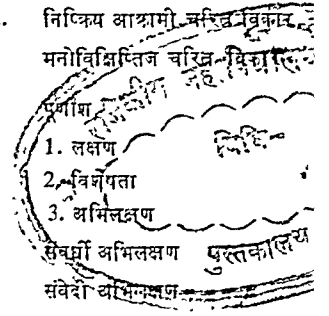 निष्क्रिय आक्रामी चरित्र विकार
मनोविक्षिप्तिज चरित्र विकार
पूर्णांश
1. लक्षण
2. विशेषता
3. अभिलक्षण
संवर्धी अभिलक्षण
पुस्तकालय
संवेदी अभिलक्षण